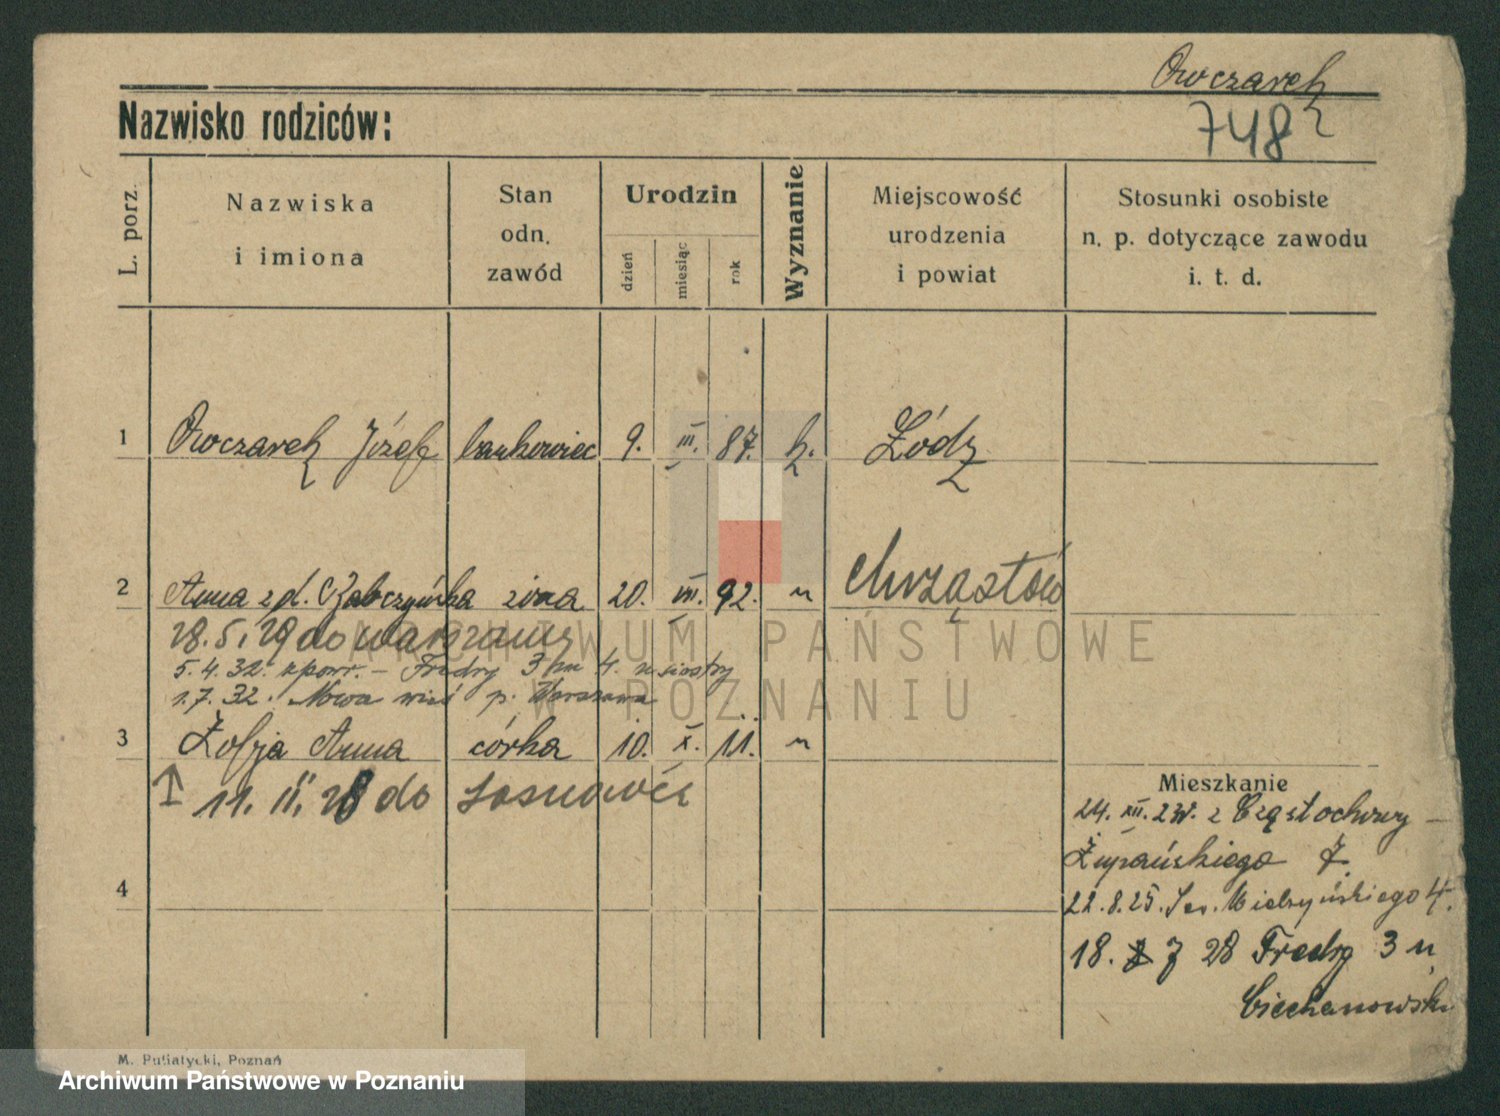 Owczarek
748
Nazwisko rodziców:
L. porz.
Nazwiska
i imiona
Stan
odn.
zawód
Urodzin
dzień
miesiąc
rok
Wyznanie
Miejscowość
urodzenia
i powiat
Stosunki osobiste
n. p. dotyczące zawodu
i. t. d.
1 Owczarek Józef bankowiec 9. III. 87. k. Łódź
2 Anna z d. żona 20. VII. 92. " Chrząstów
28.5.29 do Warszawy
5.4.32. z powr. – Fredry 3 m 4. u siostry
1.7.32. Nowa wieś p. Warszawa
3 Zofja Anna córka 10. X. 11. "
11. II. 28 do Sosnowic
4
Mieszkanie
24. XII. 23r. z Częstochowy –
Żupańskiego 7.
22.8.25. Sew. Mielżyńskiego 4.
18. 7 28 Fredry 3 u
Ciechanowsk
M. Putiatycki, Poznań
ARCHIWUM PAŃSTWOWE
W POZNANIU
Archiwum Państwowe w Poznaniu